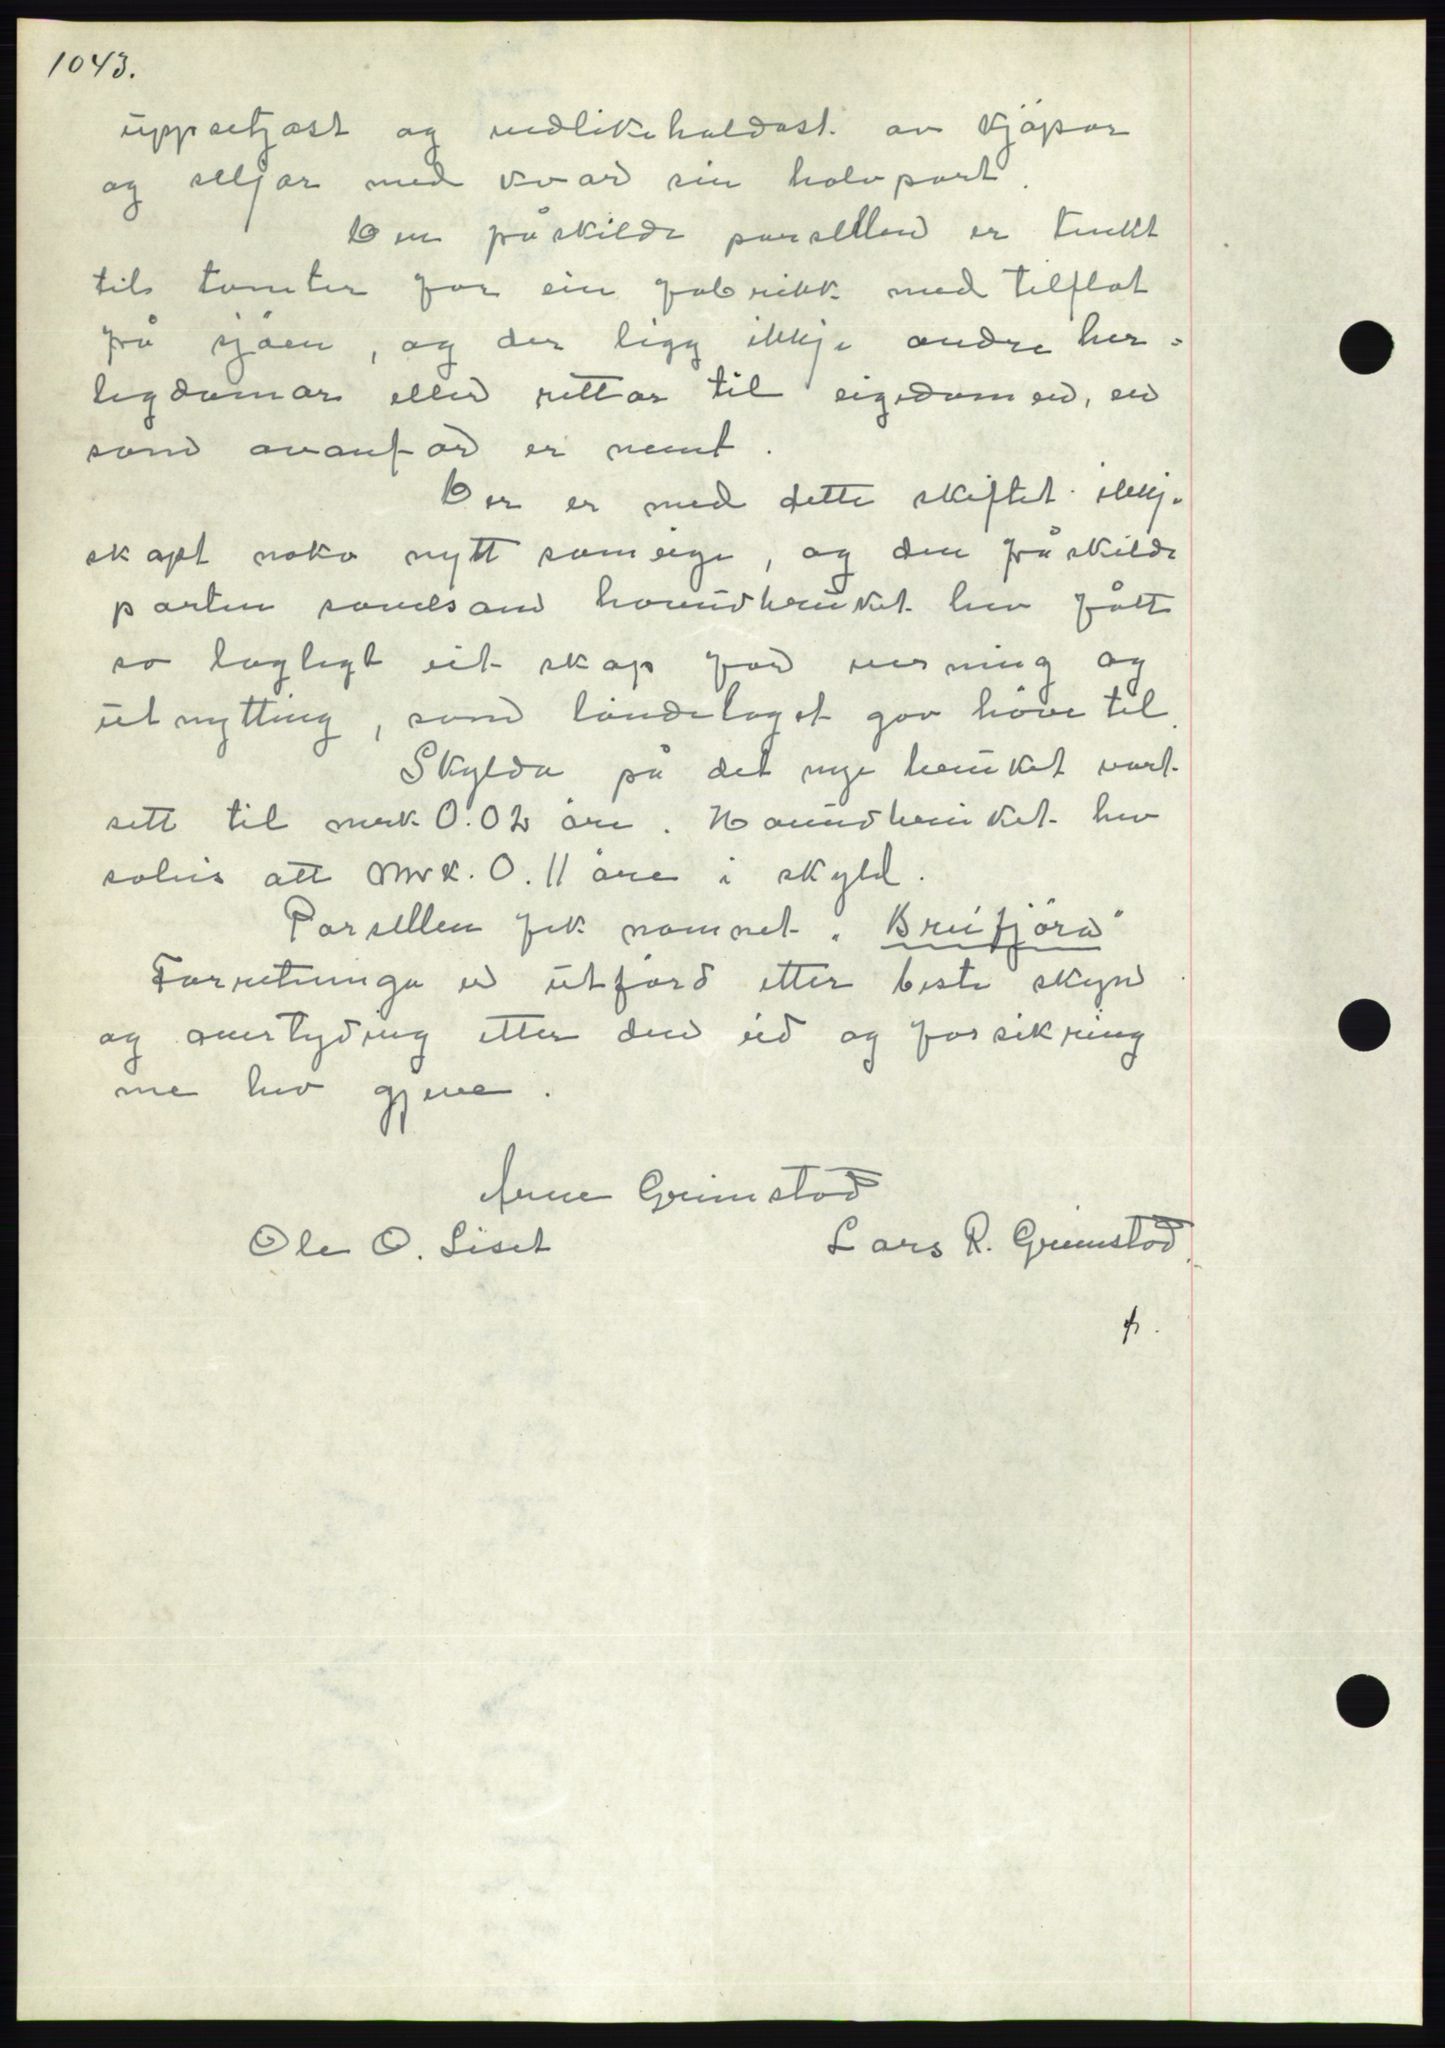 1043.
uppsetjast og vedlikehaldast av kjöpar
og seljar med kvar sin halvpart.
Den fråskilde parsellen er tenkt
til tomter for ein fabrikk med tilflot
frå sjöen, og der ligg ikkje andre her-
legdomar eller rettar til eigedomen, en
som ovanfor er nemt.
Der er med dette skiftet ikkje
skapt noko nytt sameige, og den fråskilde
parten sovelsom hovudbruket hev fått
so lagligt eit skap for  og
utnytting, som lændelaget gav höve til.
Skylda på det nye bruket vart
sett til mrk 0.02 öre. Hovudbruket hev
soleis att Mrk. 0.11 öre i skyld.
Parsellen fek namnet „Brufjöra"
Forretninga er utförd etter beste skyn
og overtyding etter den eid og forsikring
me hev gjeve.
Arne Grimstad
Ole O. Liset Lars R. Grimstad.